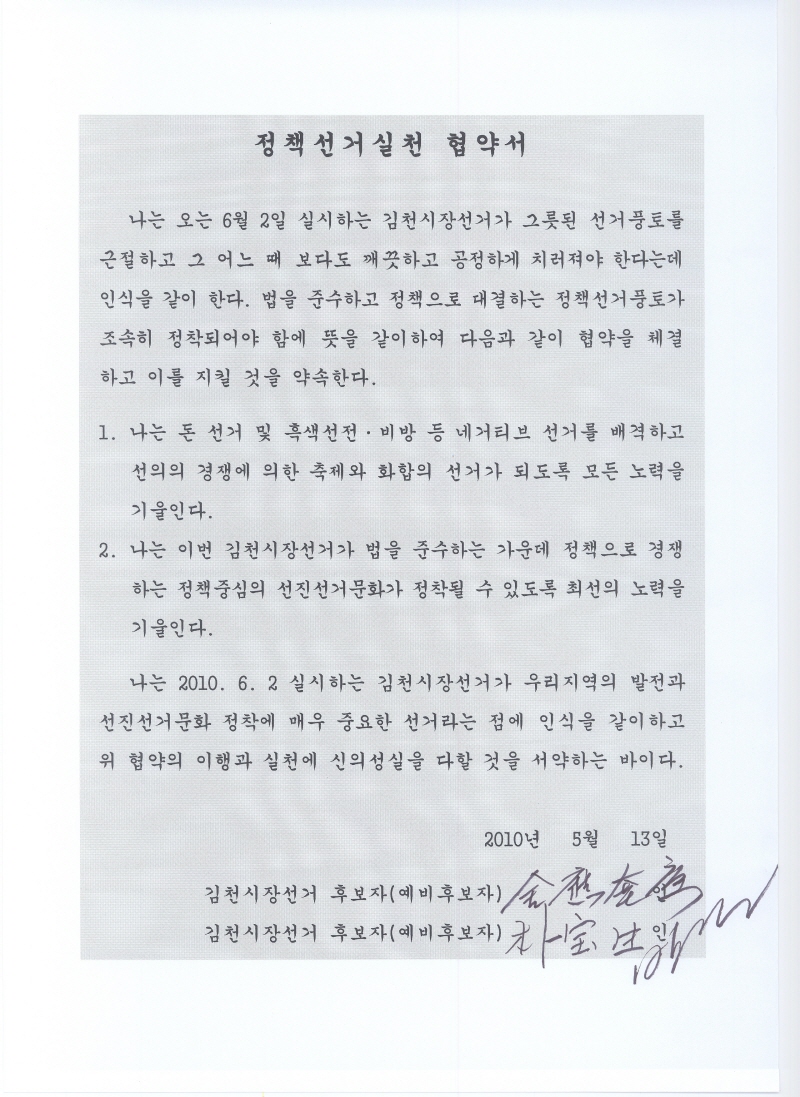 정책선거실천 협약서
나는 오는 6월 2일 실시하는 김천시장선거가 그릇된 선거풍토를
근절하고 그 어느 때 보다도 깨끗하고 공정하게 치러져야 한다는데
인식을 같이 한다. 법을 준수하고 정책으로 대결하는 정책선거풍토가
조속히 정착되어야 함에 뜻을 같이하여 다음과 같이 협약을 체결
하고 이를 지킬 것을 약속한다.
1. 나는 돈 선거 및 흑색선전·비방 등 네거티브 선거를 배격하고
선의의 경쟁에 의한 축제와 화합의 선거가 되도록 모든 노력을
기울인다.
2. 나는 이번 김천시장선거가 법을 준수하는 가운데 정책으로 경쟁
하는 정책중심의 선진선거문화가 정착될 수 있도록 최선의 노력을
기울인다.
나는 2010. 6. 2 실시하는 김천시장선거가 우리지역의 발전과
선진선거문화 정착에 매우 중요한 선거라는 점에 인식을 같이하고
위 협약의 이행과 실천에 신의성실을 다할 것을 서약하는 바이다.
2010년 5월 13일
김천시장선거 후보자(예비후보자)
김천시장선거 후보자(예비후보자) 朴宝生 인